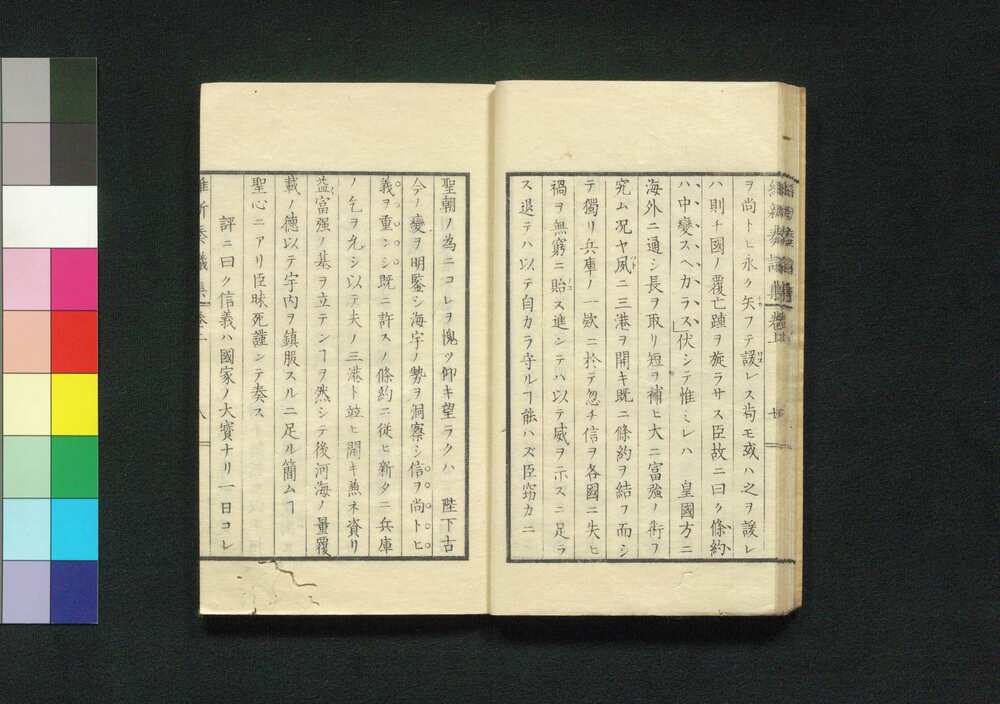 ヲ尚トヒ永ク矢フテ諼レス茍モ或ハ之ヲ諼レ
ハ則チ國ノ覆亡踵ヲ旋ラサス臣故ニ曰ク條約
ハ中變スヘカラス」伏シテ惟ミレハ　皇國方ニ
海外ニ通シ長ヲ取リ短ヲ補ヒ大ニ富强ノ術ヲ
究ム况ヤ夙ニ三港ヲ開キ既ニ條約ヲ結フ而シ
テ獨リ兵庫ノ一欵ニ於テ忽チ信ヲ各國ニ失ヒ
禍ヲ無窮ニ貽ス進シテハ以テ威ヲ示スニ足ラ
ス退テハ以テ自カラ守ルヿ能ハズ臣窃カニ
聖朝ノ為ニコレヲ愧ツ仰キ望ラクハ　陛下古
今ノ變ヲ明鑒シ海宇ノ勢ヲ洞察シ信ヲ尚トヒ
義ヲ重ンシ既ニ許スノ條約ニ従ヒ新タニ兵庫
ノ乞ヲ允シ以テ夫ノ三港ト竝ヒ開キ兼ネ資リ
益富强ノ基ヲ立テンヿヲ然シテ後河海ノ量覆
載ノ德以テ宇内ヲ鎮服スルニ足ル簡ムヿ
聖心ニアリ臣昧死謹ンテ奏ス
評ニ曰ク信義ハ國家ノ大寶ナリ一日コレ
維新奏議集　卷二　八